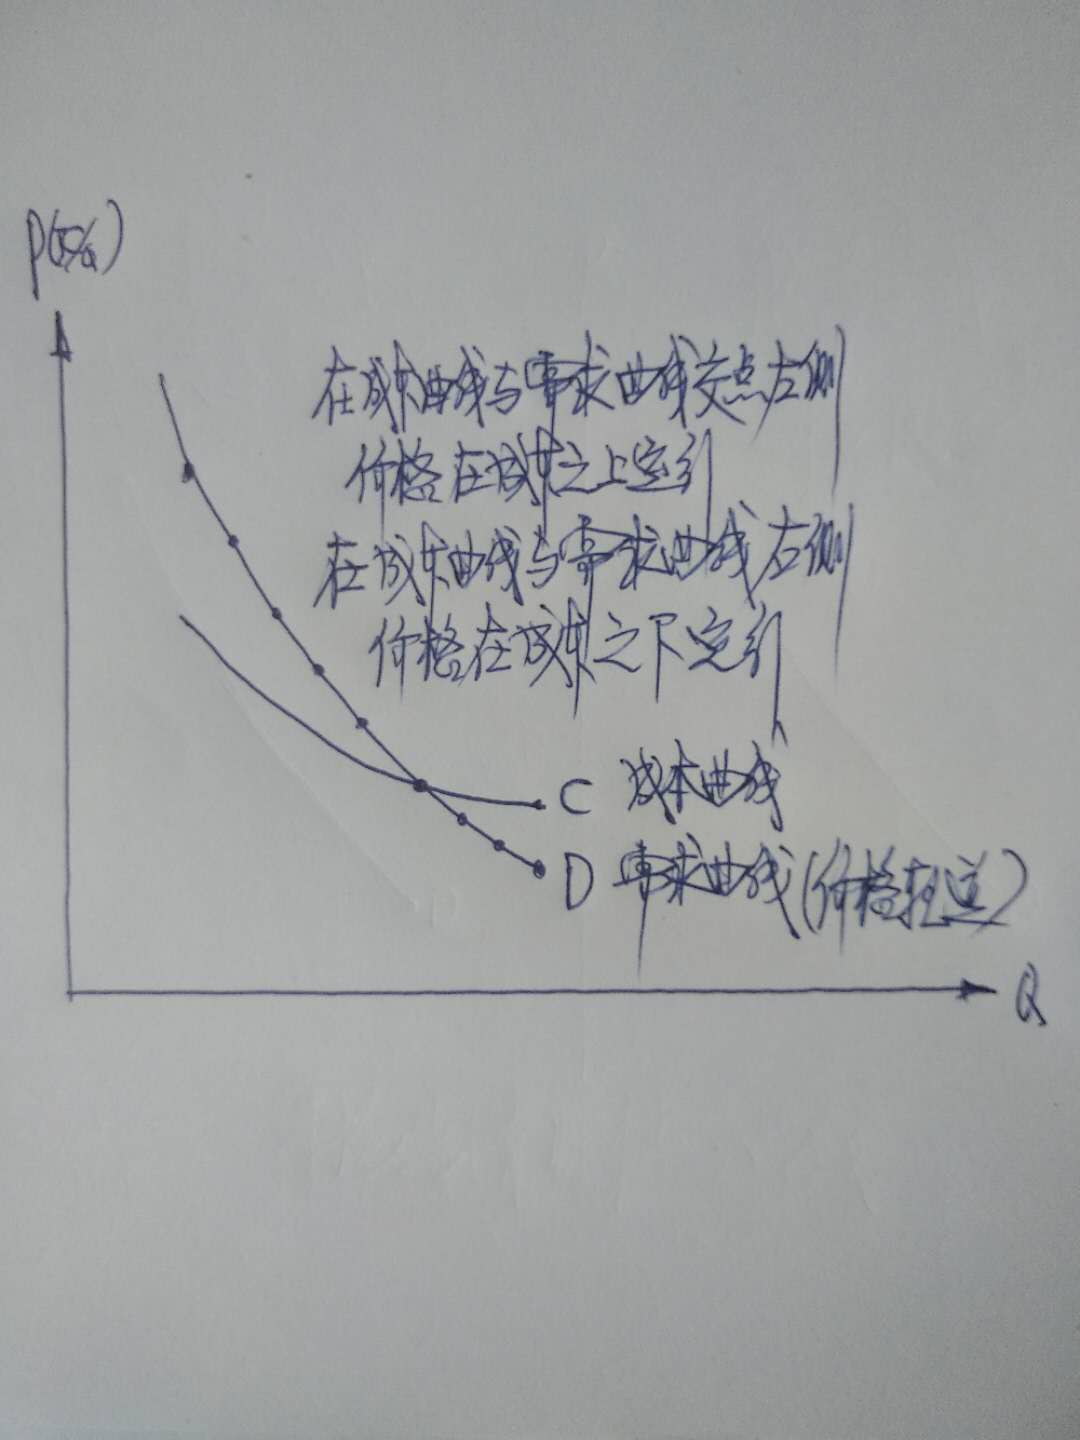 P
在成本曲线与需求曲线交点左侧
价格在成本之上
在成本曲线与需求曲线右侧
价格在成本之下
C 成本曲线
D 需求曲线(价格轨道)
Q